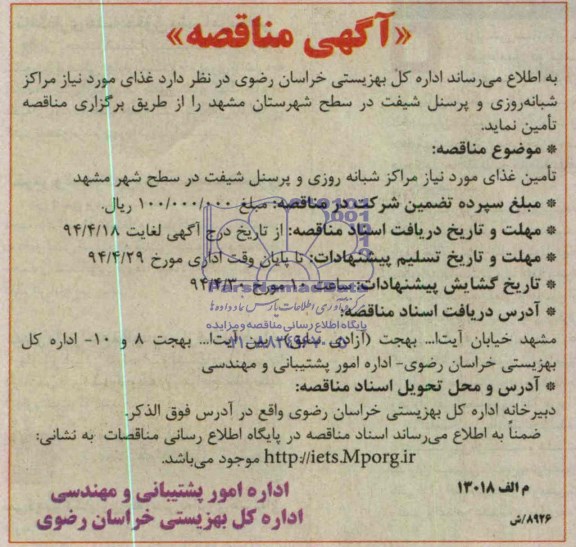 «آگهی مناقصه»
به اطلاع می‌رساند اداره کل بهزیستی خراسان رضوی در نظر دارد غذای مورد نیاز مراکز
شبانه‌روزی و پرسنل شیفت در سطح شهرستان مشهد را از طریق برگزاری مناقصه
تأمین نماید.
* موضوع مناقصه:
تأمین غذای مورد نیاز مراکز شبانه روزی و پرسنل شیفت در سطح شهر مشهد
* مبلغ سپرده تضمین شرکت در مناقصه: مبلغ ۱۰۰/۰۰۰/۰۰۰ ریال.
* مهلت و تاریخ دریافت اسناد مناقصه: از تاریخ درج آگهی لغایت ۹۴/۴/۱۸
* مهلت و تاریخ تسلیم پیشنهادات: تا پایان وقت اداری مورخ ۹۴/۴/۲۹
* تاریخ گشایش پیشنهادات: ساعت ۱۰ مورخ ۹۴/۴/۳۰
* آدرس دریافت اسناد مناقصه:
مشهد خیابان آیت‌ا... بهجت (آزادی سابق) بین آیت‌ا... بهجت ۸ و ۱۰- اداره کل
بهزیستی خراسان رضوی- اداره امور پشتیبانی و مهندسی
* آدرس و محل تحویل اسناد مناقصه:
دبیرخانه اداره کل بهزیستی خراسان رضوی واقع در آدرس فوق الذکر.
ضمناً به اطلاع می‌رساند اسناد مناقصه در پایگاه اطلاع رسانی مناقصات به نشانی:
http://iets.Mporg.ir موجود می‌باشد.
م الف ۱۳۰۱۸
اداره امور پشتیبانی و مهندسی
اداره کل بهزیستی خراسان رضوی
۸۹۲۶/ش
پایگاه اطلاع رسانی مناقصه و مزایده